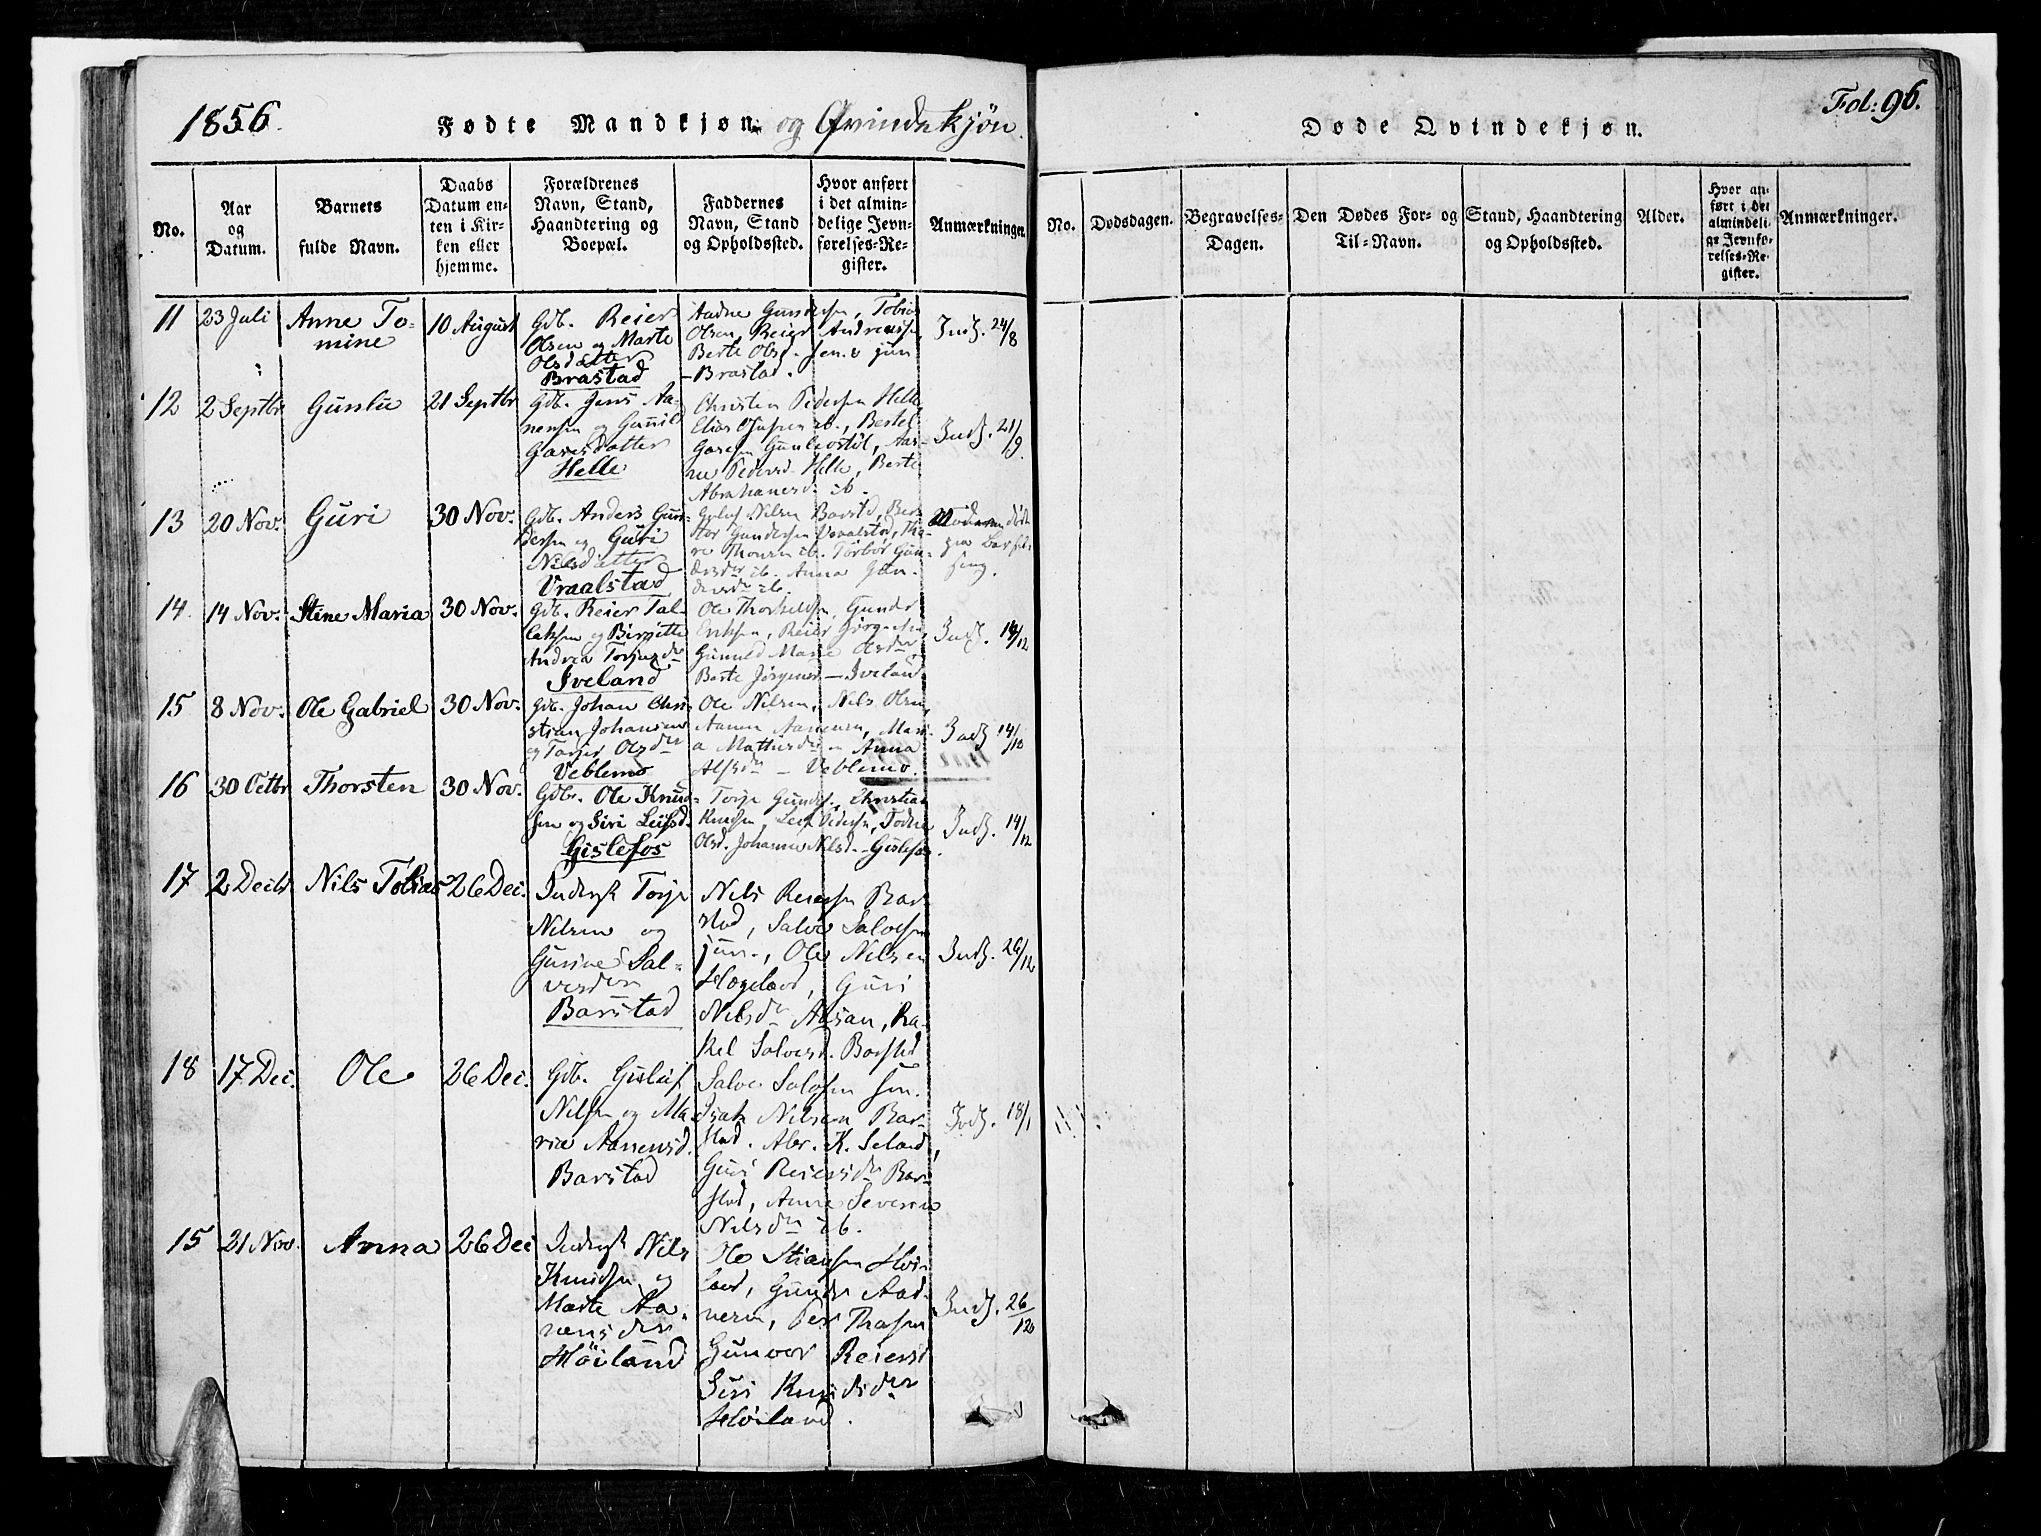 1856.
Fødte Mandkjøn og Qvindekjön.
No.
Aar og Datum.
Barnets fulde Navn.
Daabs Datum enten i Kirken eller hjemme.
Forældrenes Navn, Stand, Haandtering og Boepæl.
Faddernes Navn, Stand og Opholdssted.
Hvor anført i det almindelige Jevnførelses-Register.
Anmærkninger.
11
23 Juli
Anne To-
mine
10 August
Gdb. Reier
Olsen og Marte
Olsdatter
Brastad
Aadne Gundersen, Tobias
Olsen, Reier Andreassen,
Berte Olsd. sen. & jun
- Brastad.
Inds. 24/8
12
2 Septbr
Gunlu
21 Septbr
Gdb. Jens Aa-
nensen og Gunild
Helle
Christen Pedersen Helle
ne Pedersd. Helle, Berte
Abrahamsd. ib.
Inds. 21/9
13
20 Nov.
Guri
30 Nov.
Gdb. Anders Gun-
dersen og Guri
Nilsdatter
Vraalstad
Gisluf Nilsen Barstd,
Moderen døde
paa Barsel-
seng.
14
14 Nov.
Stine Maria
30 Nov.
Gdb. Reier Tal-
laksen og Birgitte
Andrea Torjusdr
Iveland
Ole Thorkeldsen, Gunder
Eriksen, Reier Jörgensen,
Gunuld Marie Olsdr,
Berte Jörgensd - Iveland.
Inds. 14/12
15
8 Nov.
Ole Gabriel
30 Nov.
Gdb. Johan Chri-
stian Johansen
og Torjer Olsdr
Veblemo
Ole Nilsen, Nils Olsen,
Aanen Aanensen, Mari-
a Mattiesdr - Anna
Alfsdr - Veblemo.
Inds. 14/12
16
30 Octbr
Thorsten
30 Nov.
Gdb. Ole Knud-
sen og Siri Leifsd.
Gislefos
Torje Gunds., Christian
Knudsen, Leif Pedersen, Todne
Olsd. Johanne Nilsd - Gislefos.
Inds. 14/12
17
2 Decbr
Nils Tobias
26 Dec.
Inderst Torje
Nilsen og
Gurine Sal-
vesdr
Barstad
Nils Reiersen Bar-
stad, Salve Salvesen
jun., Ole Nilsen
Hægeland, Guri
Nilsdr Aasan, Ra-
kel Salvesd. Barstad
Inds. 26/12
18
17 Dec.
Ole
26 Dec.
Gdb. Gisluf
Nilsen og Ma-
ria Aanensd.
Barstad
Salve Salvesen sen.
Isak Nilsen Bar-
stad. Abr. K. Seland,
Guri Reiersdr Bar-
stad, Anne Severine
Nilsdr ib.
Inds. 18/1
15
21 Nov.
Anna
26 Dec
Inderst Nils
Knudsen og
Marte Aa-
nensdr
Höiland
Ole Stiansen Höi-
land, Gunder Aad-
nesen, Per Thorsen
Gunvor Reiersd
Siri Knudsdr
Höiland.
Inds. 26/12
Fol: 96.
Døde Qvindekjøn.
No.
Dødsdagen.
Begravelses-Dagen.
Den Dødes For- og Til-Navn.
Stand, Haandtering og Opholdssted.
Alder.
Hvor anført i det almindelige Jevnførelses-Register.
Anmærkninger.